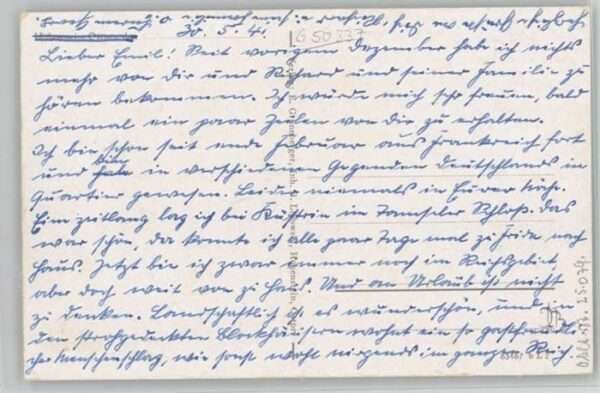 30. 5. 41.
G 50837
Lieber Emil! Seit vorigem Dezember habe ich nichts
mehr von dir und Richard und seiner Familie zu
hören bekommen. Ich würde mich sehr freuen, bald
einmal ein paar Zeilen von dir zu erhalten.
Ich bin schon seit ende Februar aus Frankreich fort
und bin in verschiedenen Gegenden Deutschlands in
Quartier gewesen. Leider niemals in Eurer Nähe.
Eine zeitlang lag ich bei Küstrin im Tamseler Schloß. das
war schön, da konnte ich alle paar Tage mal zu Frida nach
Haus. Jetzt bin ich zwar immer noch im Reichsgebiet,
aber doch weit von zu Haus. Und an Urlaub ist nicht
zu denken. Landschaftlich ist es wunderschön, und in
den strohgedeckten Blockhäusern wohnt ein so gastfreundli-
cher Menschenschlag, wie sonst wohl nirgends im ganzen Reich.